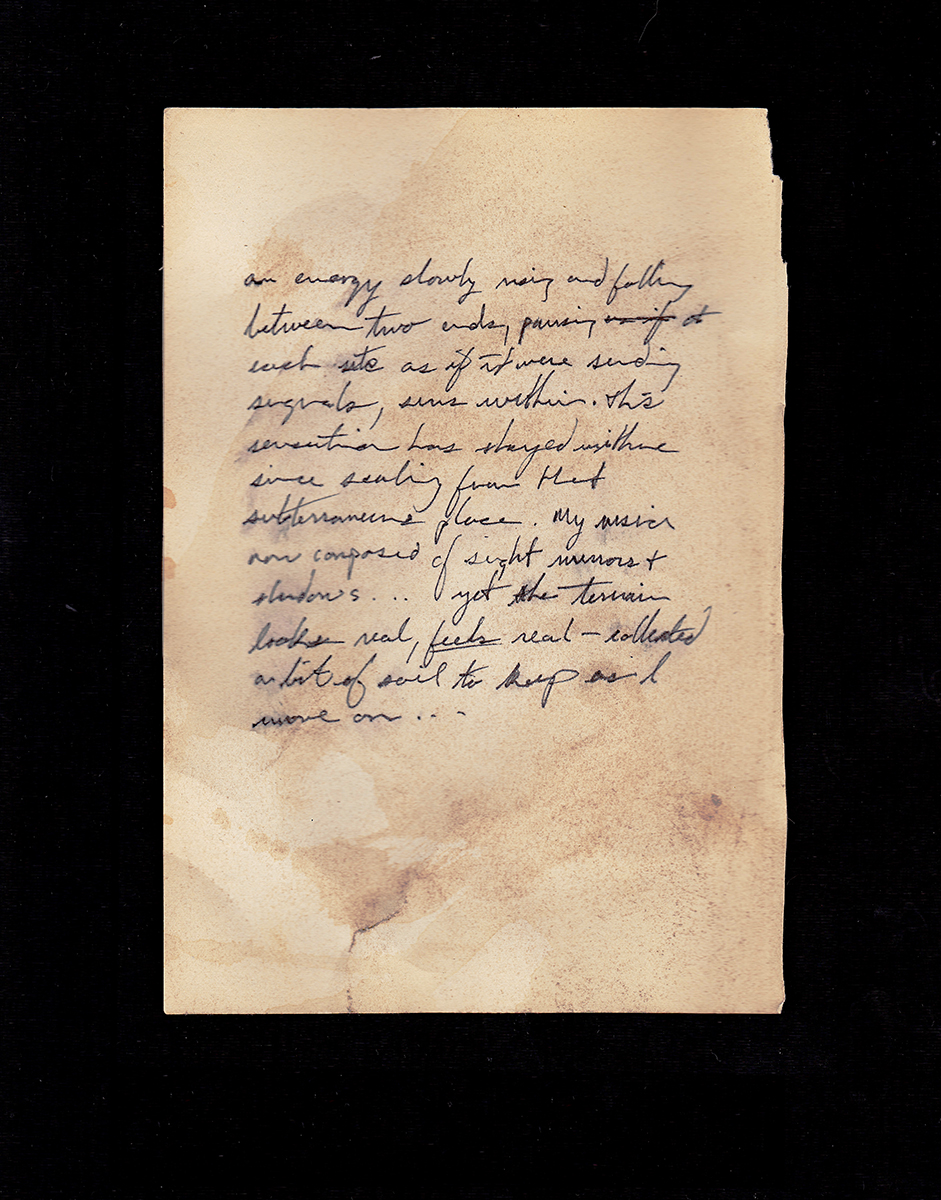 an energy slowly rising and falling
between two ends, pausing as if at
each site as if it were sending
signals, within. This
sensation has stayed with me
since from that
subterranean place. My vision
now composed of sight mirrors +
shadows ... yet the terrain
looks real, feels real – collected
a bit of soil to keep as I
move on ...